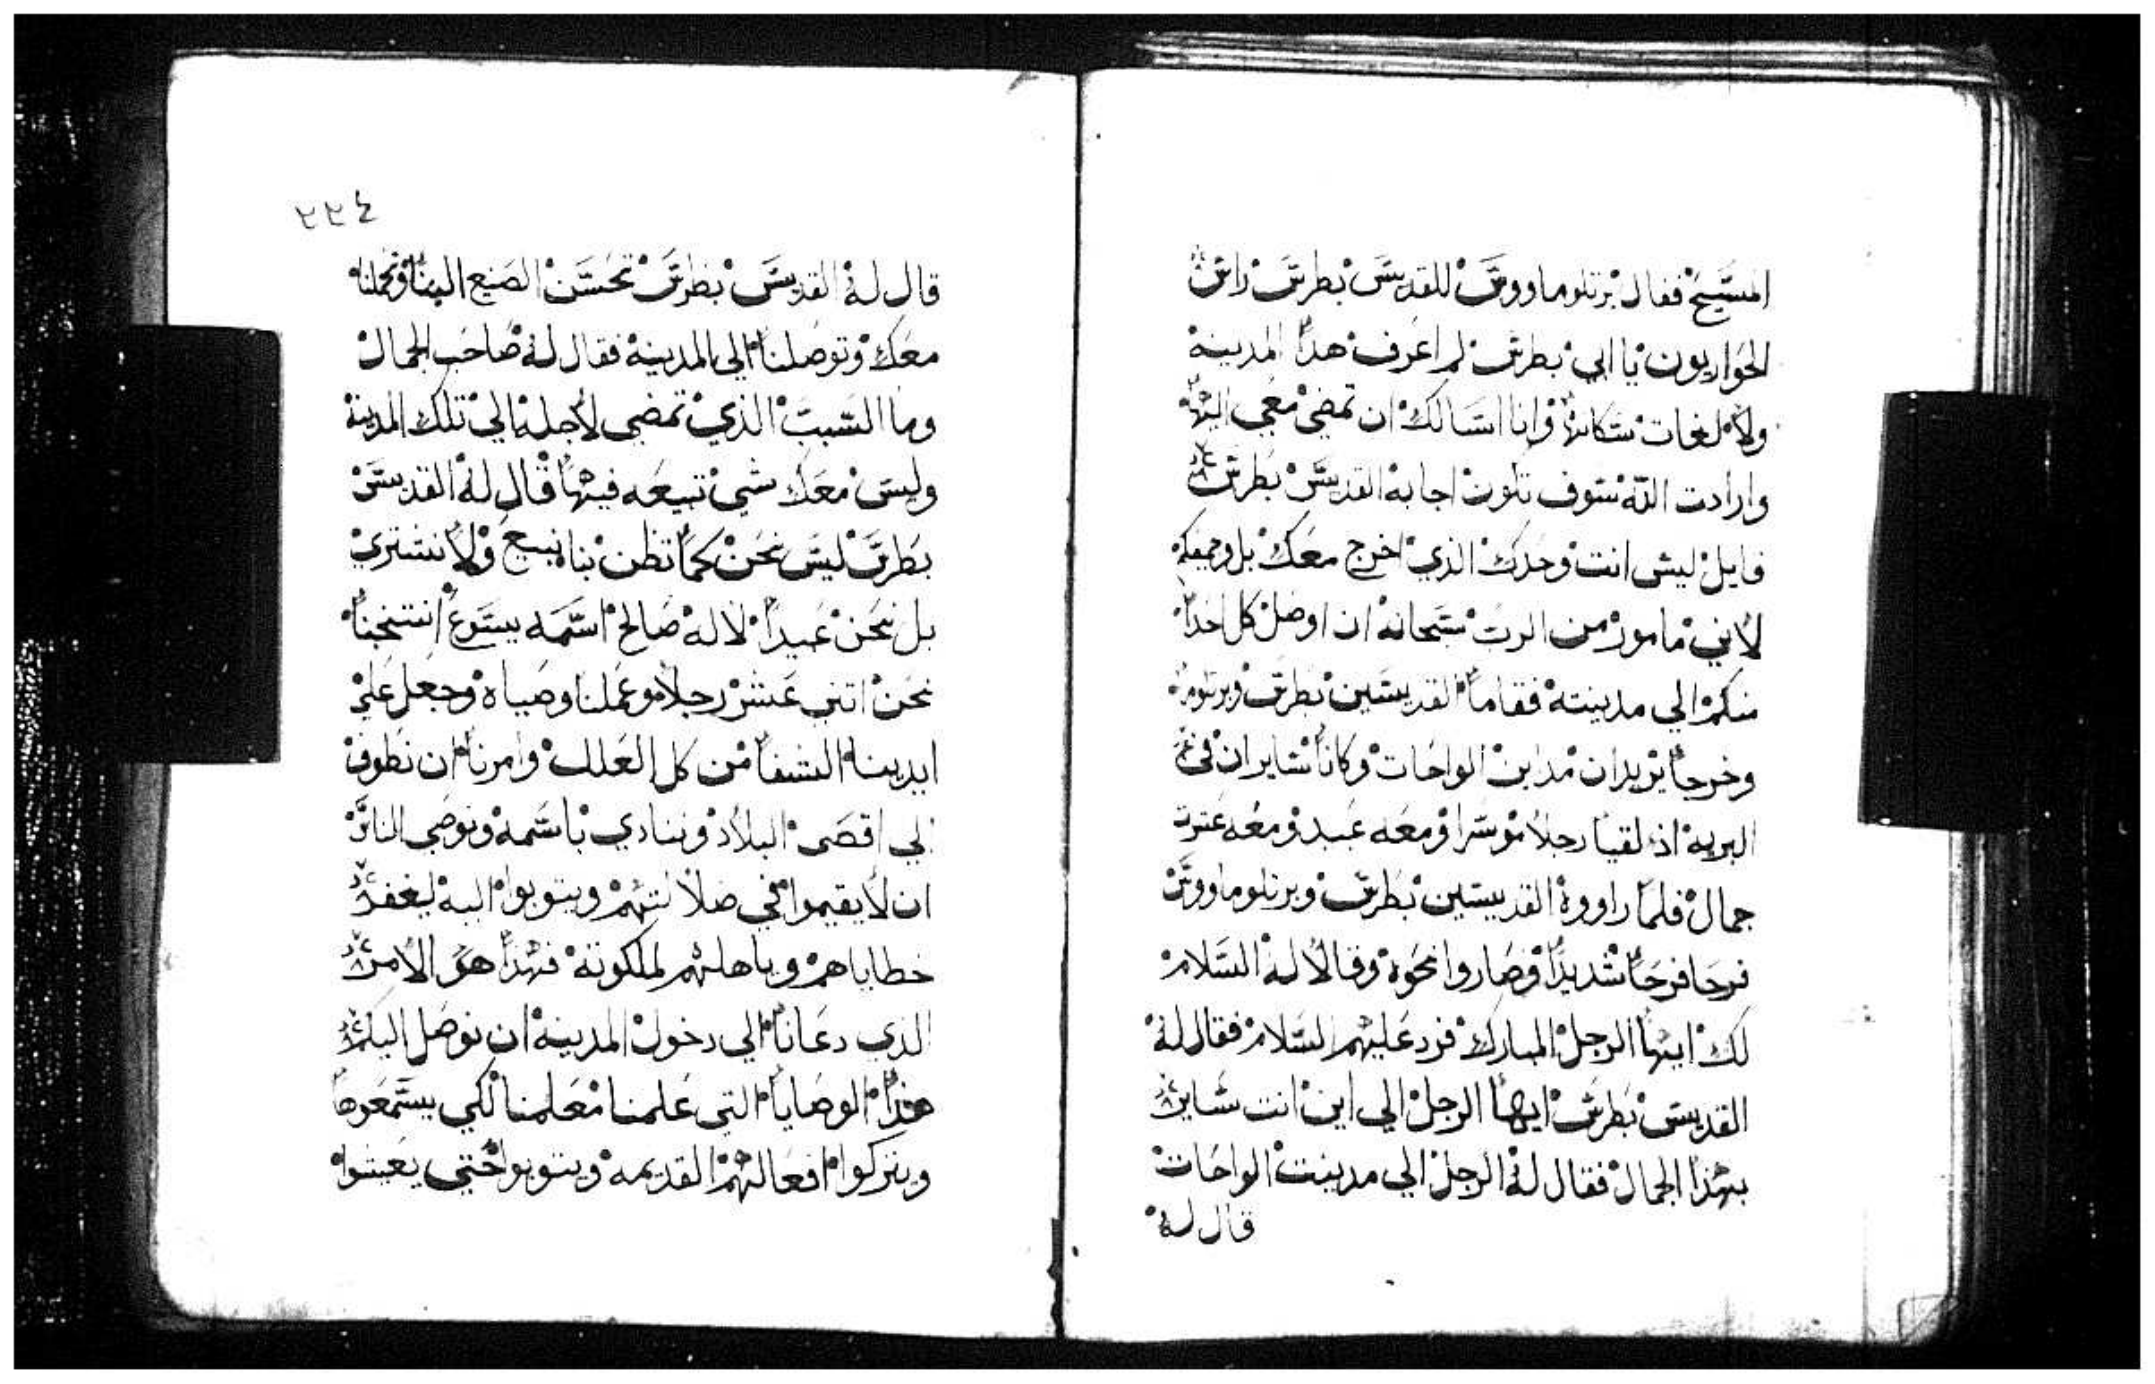 المسيح فقال برتلوماووس للقديس بطرس راس
الحواريون يا ابي بطرس لم اعرف هذا المدينة
ولا لغات سكانها وانا اسالك ان تمضي معي اليها
وارادت الله سوف تكون اجابه القديس بطرس
قايل ليس انت وحدك الذي اخرج معك بل وجميعكم
لاني مامور من الرب سبحانه ان اوصل كل احدا
منكم الي مدينته فقاما القديسين بطرس وبرتلوما
وخرجا يريدان مداين الواحات وكانا سايران في
البريه اذ لقيا رجلا موسرا ومعه عبد ومعه عشرت
جمال فلما راووه القديسين بطرس وبرتلوماووس
فرحا فرحا شديدا وصاروا نحوه وقالا له السلام
لك ايها الرجل المبارك فرد عليهم السلام فقال له
القديس بطرس ايها الرجل الي اين انت ساير
بهذا الجمال فقال له الرجل الي مدينت الواحات
قال له
٢٢٤
قال له القديس بطرس تحسن الصنيع الينا وتحملنا
معك وتوصلنا الي المدينه فقال له صاحب الجمال
وما السبب الذي تمضي لاجله الي تلك المدينة
وليس معك شي تبيعه فيها قال له القديس
بطرس ليس نحن كما تظن بنا نبيع ولا نشتري
بل نحن عبيدا لاله صالح اسمه يسوع انتخبنا
نحن اتني عشر رجلا وعملنا وصياه وجعل علي
ايدينا الشفا من كل العلل وامرنا ان نطوف
الي اقصى البلاد وننادي باسمه ونوصي الناس
ان لا يقيموا في ضلالتهم ويتوبوا اليه ليغفر
خطاياهم وياهلهم لملكوته فهذا هو الامر
الذي دعانا الي دخول المدينه ان نوصل اليكم
هذا الوصايا التي علمنا معلمنا لكي يسمعوها
ويتركوا افعالهم القديمه ويتوبوا حتي يعيشوا